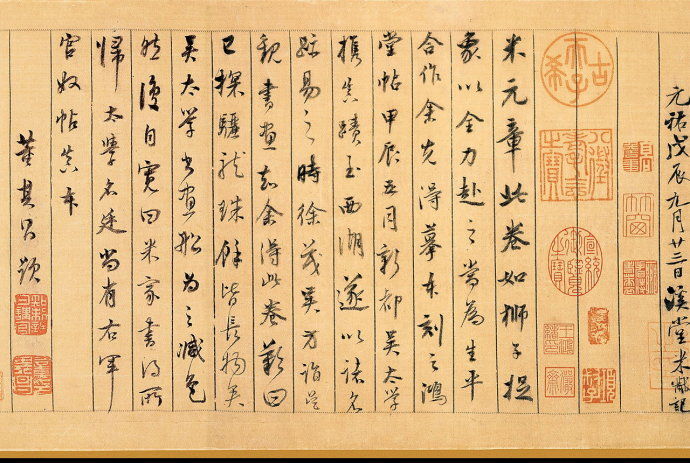 元祐戊辰九月廿三日溪堂米黻記
古希天子
宣統御覽之寶
米元章此卷如獅子捉
象以全力赴之當為生平
合作余先得摹本刻之鴻
堂帖甲辰五月新都吳太學
携真蹟至西湖遂以諸名
跡易之時徐茂吳方詣吳
觀書畫知余得此卷歎曰
已探驪龍珠餘皆長物矣
吳太學書畫船為之減色
然後自寬曰米家書得所
歸太學名廷尚有右軍
官奴帖真本
董其昌題